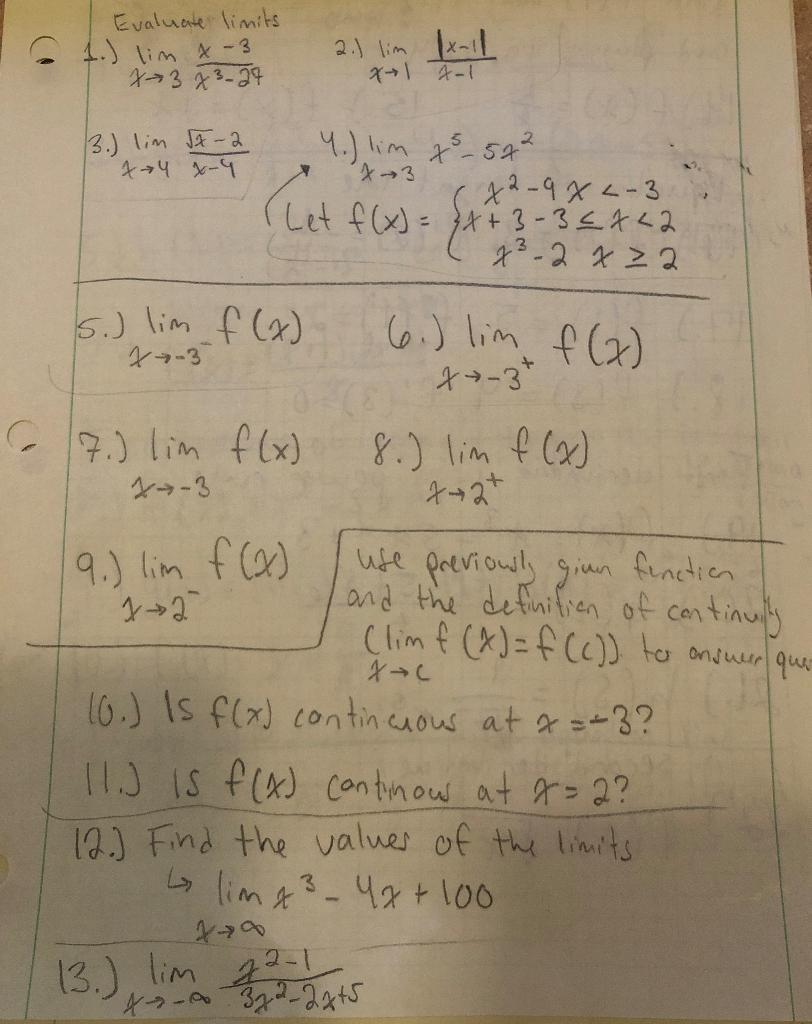 Evaluate limits
1.) lim x→3 x-3 / x³-27 2.) lim x→1 |x-1| / x-1
3.) lim x→4 √x-2 / x-4 4.) lim x→3 x⁵-5x²
Let f(x) = { x²-9 x<-3
x+3 -3≤x<2
x³-2 x≥2
5.) lim x→-3⁻ f(x) 6.) lim x→-3⁺ f(x)
7.) lim x→-3 f(x) 8.) lim x→2⁺ f(x)
9.) lim x→2⁻ f(x)
use previously given function
and the definition of continuity
(lim x→c f(x)=f(c)) to answer que
10.) Is f(x) continuous at x=-3?
11.) Is f(x) continous at x=2?
12.) Find the values of the limits
↳ lim x→∞ x³-4x+100
13.) lim x→-∞ x²-1 / 3x²-2x+5